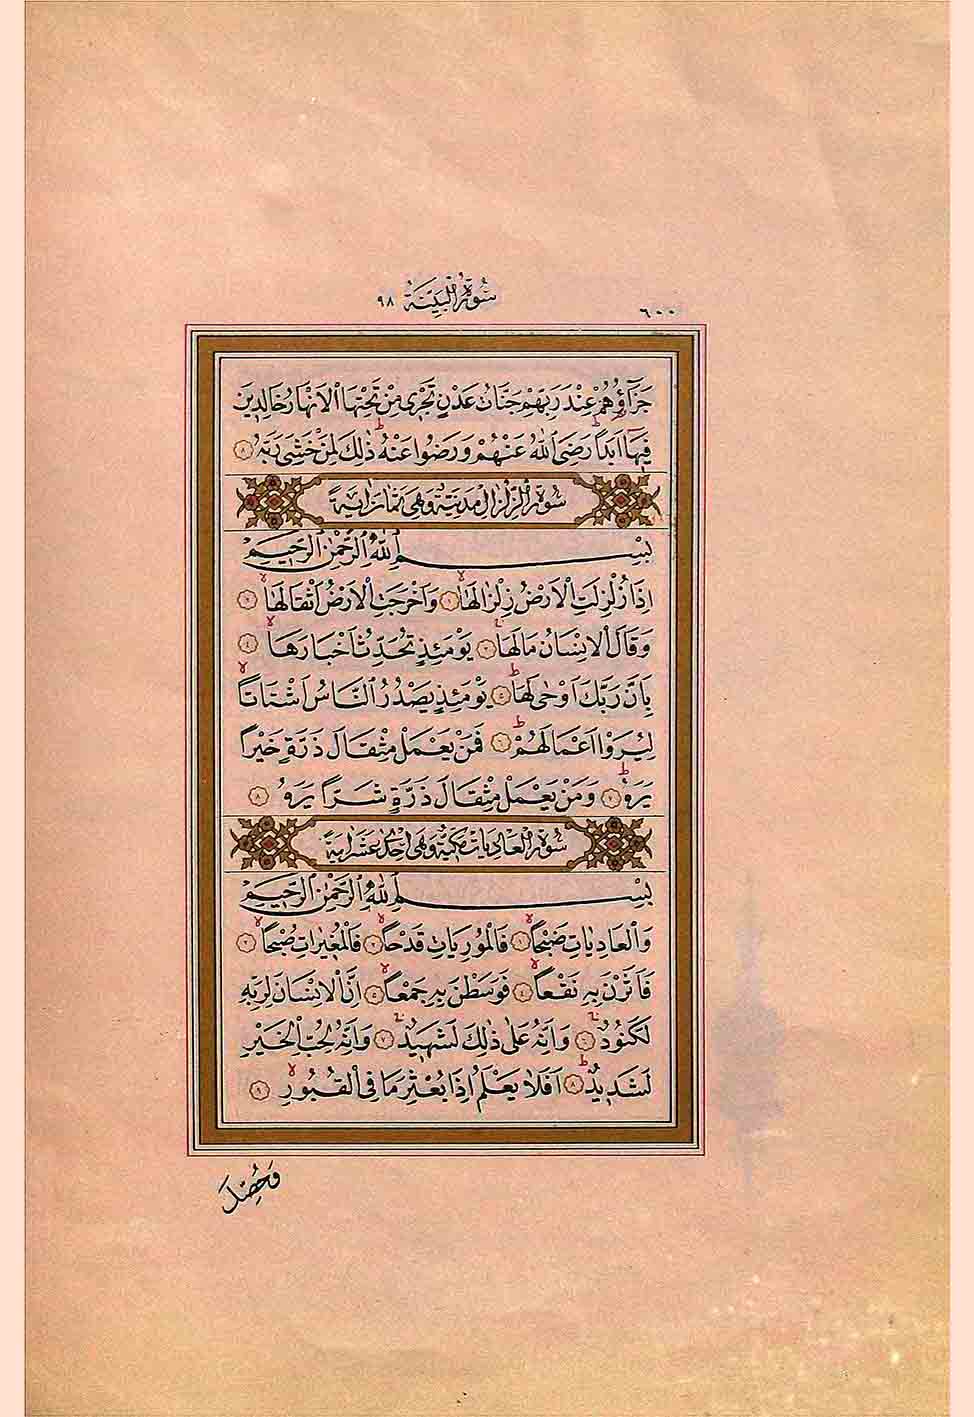 ٦٠٠ سُورَةُ الْبَيِّنَةِ ٩٨
جَزَٓاؤُ۬هُمْ عِنْدَ رَبِّهِمْ جَنَّاتُ عَدْنٍ تَجْر۪ي مِنْ تَحْتِهَا الْاَنْهَارُ خَالِد۪ينَ
ف۪يهَٓا اَبَدًاۜ رَضِيَ اللّٰهُ عَنْهُمْ وَرَضُوا عَنْهُۜ ذٰلِكَ لِمَنْ خَشِيَ رَبَّهُ ﴿٨﴾
سُورَةُ الزِّلْزَالِ مَدَنِيَّةٌ وَهِيَ ثَمَانِ اٰيَةً
بِسْمِ اللّٰهِ الرَّحْمٰنِ الرَّح۪يمِ
اِذَا زُلْزِلَتِ الْاَرْضُ زِلْزَالَهَاۙ ﴿١﴾ وَاَخْرَجَتِ الْاَرْضُ اَثْقَالَهَاۙ ﴿٢﴾
وَقَالَ الْاِنْسَانُ مَا لَهَاۚ ﴿٣﴾ يَوْمَئِذٍ تُحَدِّثُ اَخْبَارَهَاۙ ﴿٤﴾
بِاَنَّ رَبَّكَ اَوْحٰى لَهَاۜ ﴿٥﴾ يَوْمَئِذٍ يَصْدُرُ النَّاسُ اَشْتَاتًاۙ
لِيُرَوْا اَعْمَالَهُمْۜ ﴿٦﴾ فَمَنْ يَعْمَلْ مِثْقَالَ ذَرَّةٍ خَيْرًا
يَرَهُۜ ﴿٧﴾ وَمَنْ يَعْمَلْ مِثْقَالَ ذَرَّةٍ شَرًّا يَرَهُ ﴿٨﴾
سُورَةُ الْعَادِيَاتِ مَكِّيَّةٌ وَهِيَ اِحْدٰى عَشَرَ اٰيَةً
بِسْمِ اللّٰهِ الرَّحْمٰنِ الرَّح۪يمِ
وَالْعَادِيَاتِ ضَبْحًاۙ ﴿١﴾ فَالْمُورِيَاتِ قَدْحًاۙ ﴿٢﴾ فَالْمُغ۪يرَاتِ صُبْحًاۙ ﴿٣﴾
فَاَثَرْنَ بِه۪ نَقْعًاۙ ﴿٤﴾ فَوَسَطْنَ بِه۪ جَمْعًاۙ ﴿٥﴾ اِنَّ الْاِنْسَانَ لِرَبِّه۪
لَكَنُودٌۚ ﴿٦﴾ وَاِنَّهُ عَلٰى ذٰلِكَ لَشَه۪يدٌۚ ﴿٧﴾ وَاِنَّهُ لِحُبِّ الْخَيْرِ
لَشَد۪يدٌۜ ﴿٨﴾ اَفَلَا يَعْلَمُ اِذَا بُعْثِرَ مَا فِي الْقُبُورِۙ ﴿٩﴾
وَحُصِّلَ